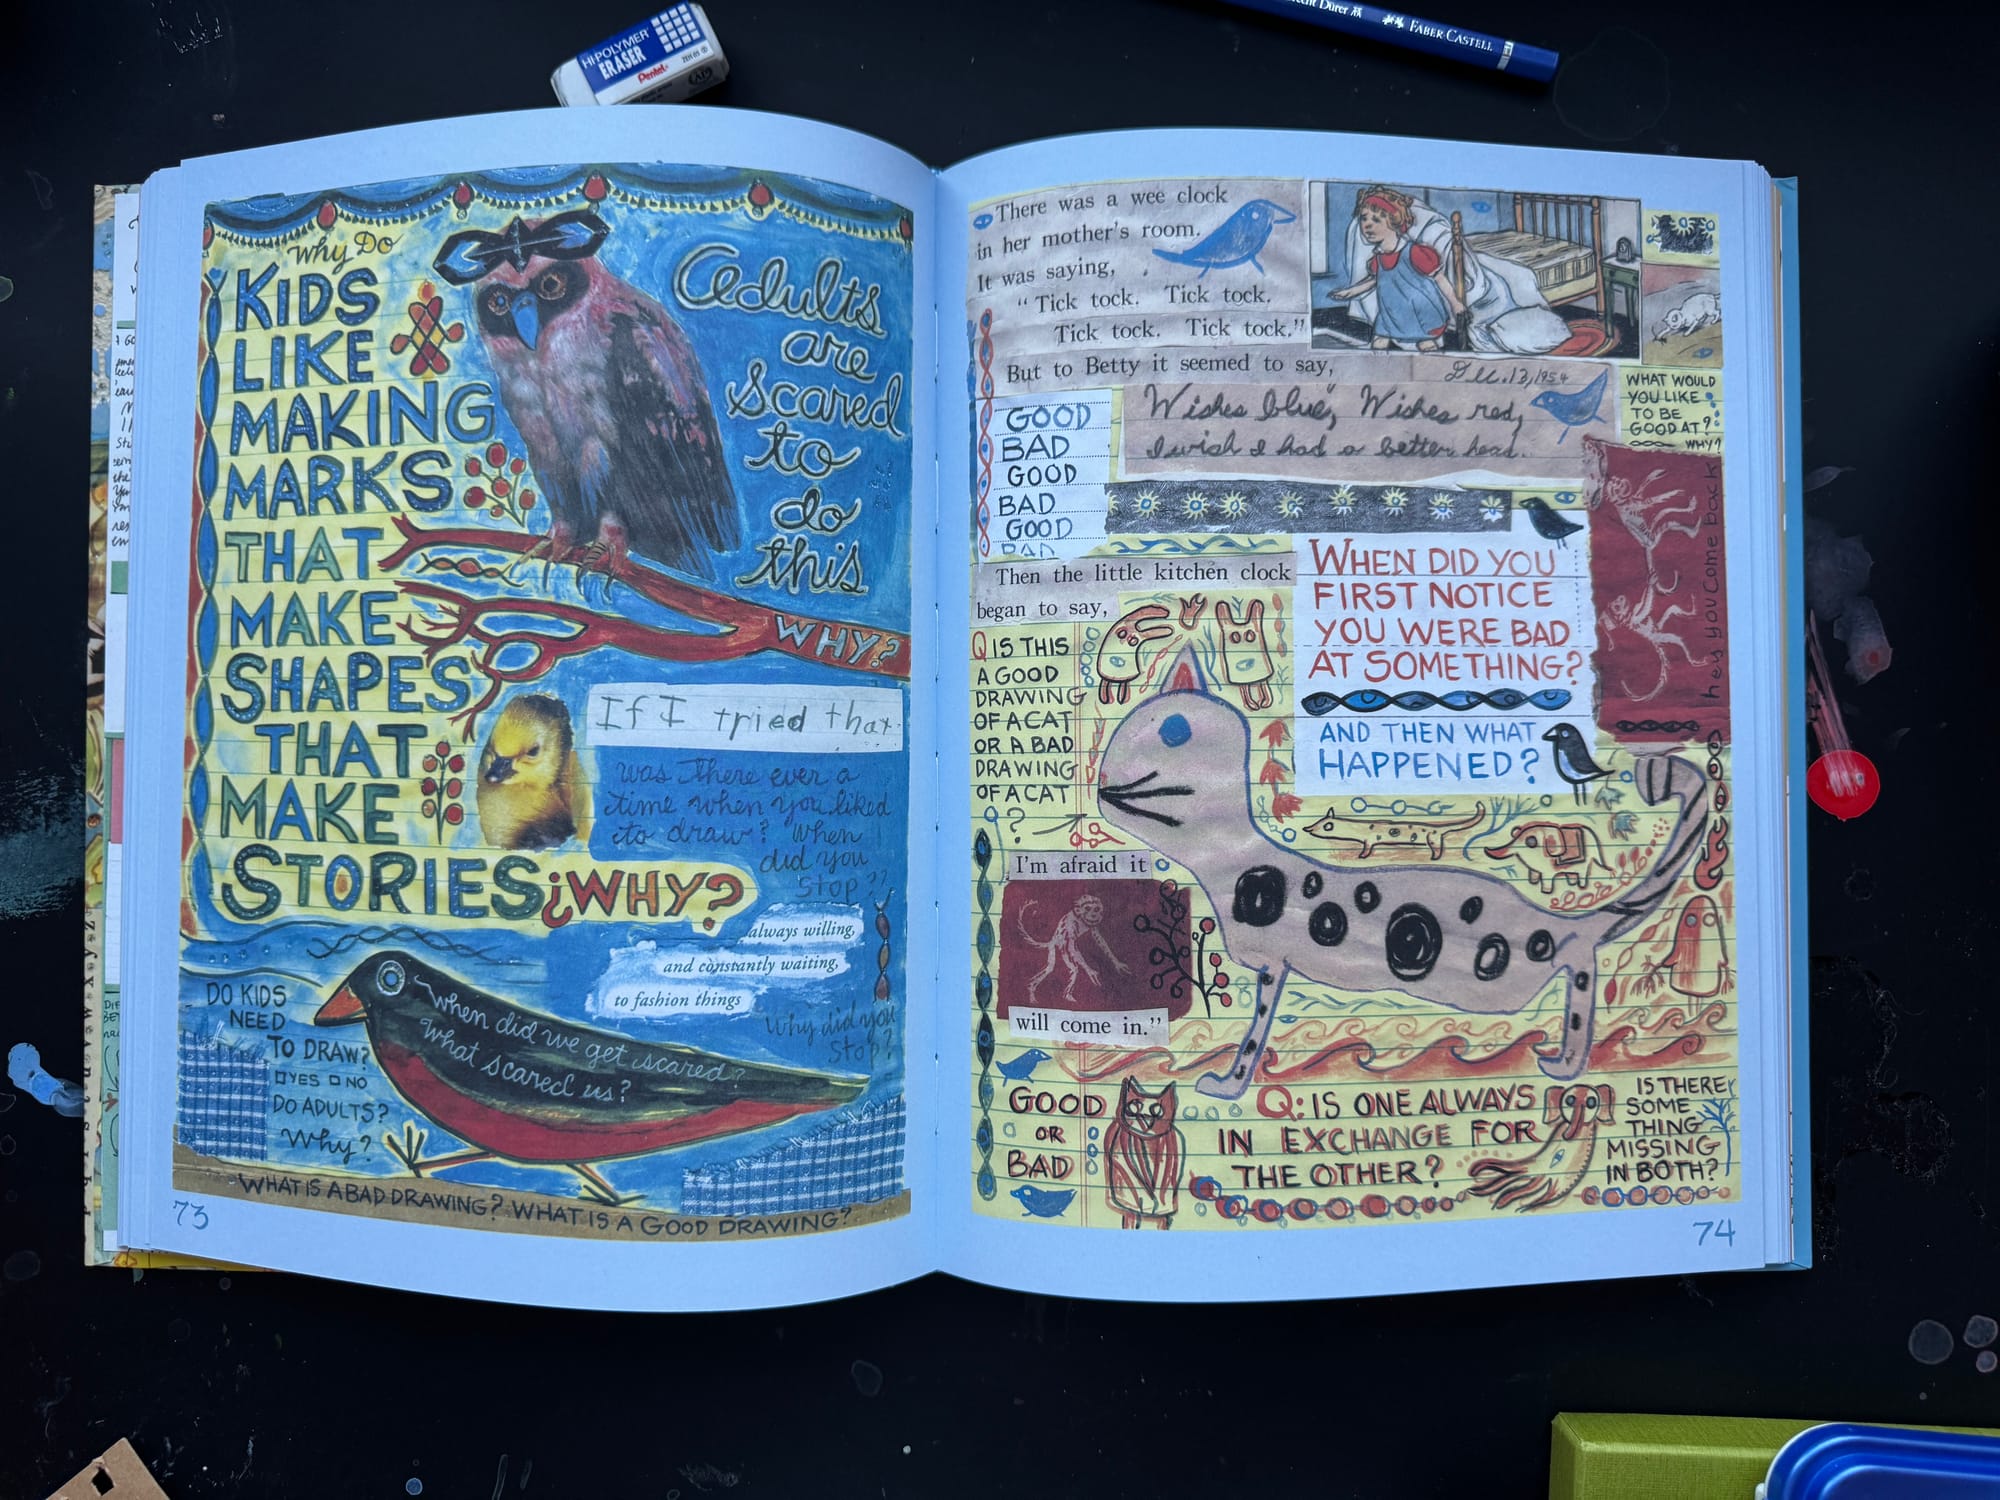 HI-POLYMER
ERASER
Pentel
FABER-CASTELL
Why Do
KIDS
LIKE
MAKING
MARKS
THAT
MAKE
SHAPES
THAT
MAKE
STORIES¿WHY?
Adults
are
scared
to
do
this
WHY?
If I tried that
was there ever a
time when you liked
to draw? When
did you
stop??
always willing,
and constantly waiting,
to fashion things
Why did you
stop?
DO KIDS
NEED
TO DRAW?
YES NO
DO ADULTS?
Why?
when did we get scared?
What scared us?
WHAT IS A BAD DRAWING? WHAT IS A GOOD DRAWING?
73
There was a wee clock
in her mother's room.
It was saying,
"Tick tock. Tick tock.
Tick tock. Tick tock."
But to Betty it seemed to say,
Dec. 13, 1954
Wishes blue, Wishes red,
I wish I had a better head.
GOOD
BAD
GOOD
BAD
GOOD
BAD
WHAT WOULD
YOU LIKE
TO BE
GOOD AT?
WHY?
hey you come back
Then the little kitchen clock
began to say,
WHEN DID YOU
FIRST NOTICE
YOU WERE BAD
AT SOMETHING?
AND THEN WHAT
HAPPENED?
Q IS THIS
A GOOD
DRAWING
OF A CAT
OR A BAD
DRAWING
OF A CAT
?
I'm afraid it
will come in."
GOOD
OR
BAD
Q: IS ONE ALWAYS
IN EXCHANGE FOR
THE OTHER?
IS THERE
SOME
THING
MISSING
IN BOTH?
74